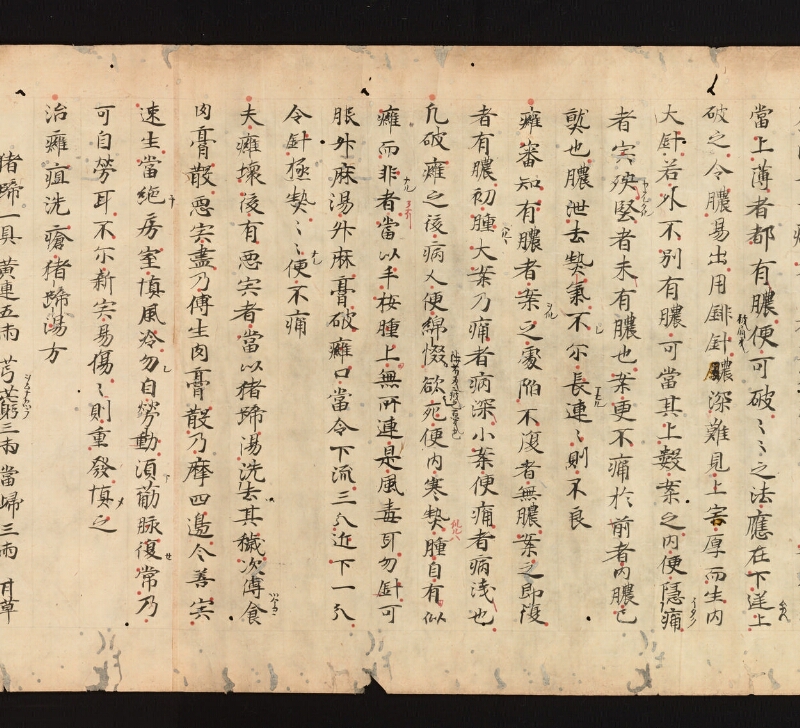 當上薄者都有膿便可破〻〻之法應在下逆上
破之令膿易出用鈹針膿深難見上宍厚而生內
大針若外不別有膿可當其上數案之內便隱痛
者宍殃堅者未有膿也案更不痛於前者內膿已
熟也膿泄去熱氣不尒長速〻則不良
癰審知有膿者案之處陷不復者無膿案之即復
者有膿初腫大案乃痛者病深小案便痛者病淺也
凡破癰之後病人便綿惙欲死便內寒熱腫自有似
癰而非者當以手桉腫上無所連是風毒耳勿針可
服升麻湯升麻膏破癰口當令下流三分近下一分
令針極熱〻便不痛
夫癰壞後有惡宍者當以猪蹄湯洗去其穢次傅食
肉膏散惡宍盡乃傅生肉膏散乃摩四邊令善宍
速生當絕房室慎風冷勿自勞動須荕脉復常乃
可自勞耳不尒新宍易傷〻則重發慎之
治癰疽洗瘡猪蹄湯方
猪蹄一具 黃連五兩 芎藭三兩 當歸三兩 甘草